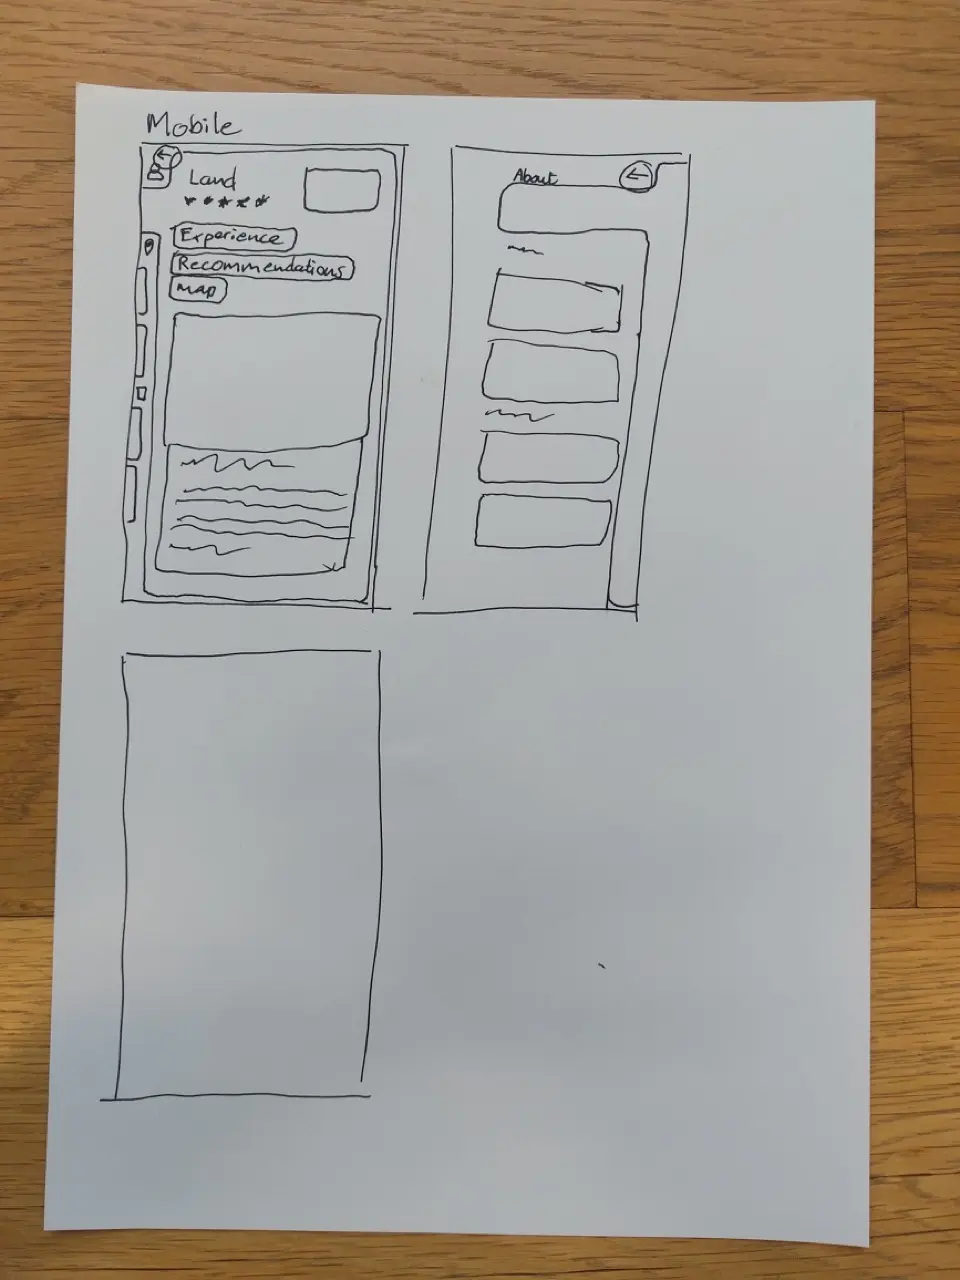 Mobile
Land
Experience
Recommendations
Map
About